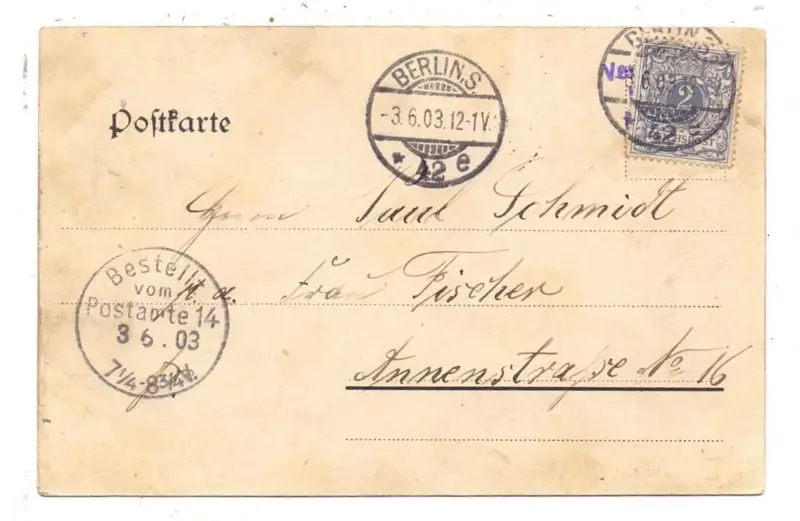 Postkarte
BERLIN,S.
-3.6.03.12-1V.
* 42 e
BERLIN,S.
2
Herrn Paul Schmidt
Frau Fischer
Annenstraße No 16
Bestellt
vom
Postamte 14
3 6 . 03
7¼-8¾V.